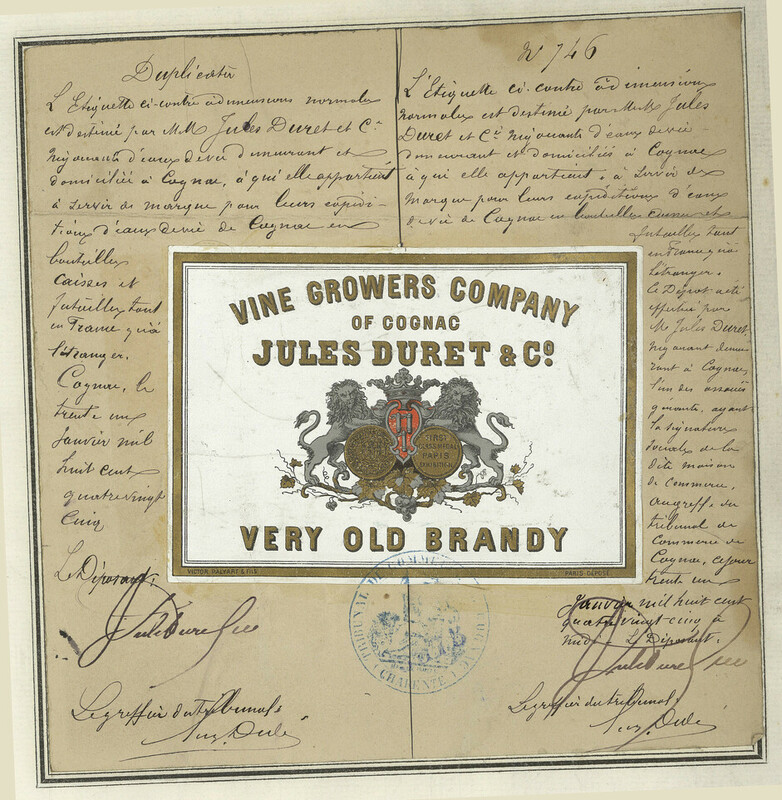 Duplicata
L'Etiquette ci-contre à dimensions normales
est destiné par MM Jules Duret et Cie
Négociants d'eaux de vie demeurant et
domiciliés à Cognac, à qui elle appartient
à servir de marque pour leurs expédi-
tions d'eaux de vie de Cognac en
bouteilles
caisses et
futailles tant
en France qu'à
l'étranger.
Cognac, le
trente un
Janvier mil
huit cent
quatre vingt
Cinq
Le Déposant,
Jules Duret & Cie
Le greffier du tribunal
Aug. Dulé
N 746
L'Etiquette ci-contre à dimensions
normales est destiné par MM Jules
Duret et Cie Négociants d'eaux de vie
demeurant et domiciliés à Cognac
à qui elle appartient, à servir de
marque pour leurs expéditions d'eaux
de vie de Cognac en bouteilles caisses et
futailles tant
en France qu'à
l'étranger.
Le Dépôt a été
effectué par
M Jules Duret
Négociant demeu-
rant à Cognac
l'un des associés
gérants, ayant
la signature
sociale de la
dite maison
de Commerce,
au greffe du
tribunal de
Commerce de
Cognac, ce jour
trente un
Janvier mil huit cent
quatre vingt cinq à
midi Le Déposant.
Jules Duret & Cie
Le greffier du tribunal
Aug. Dulé
VINE GROWERS COMPANY
OF COGNAC
JULES DURET & Co.
FIRST
CLASS MEDAL
PARIS
EXHIBITION
VERY OLD BRANDY
VICTOR PALYART & FILS
PARIS-DEPOSÉ
TRIBUNAL DE COMMERCE
(CHARENTE)